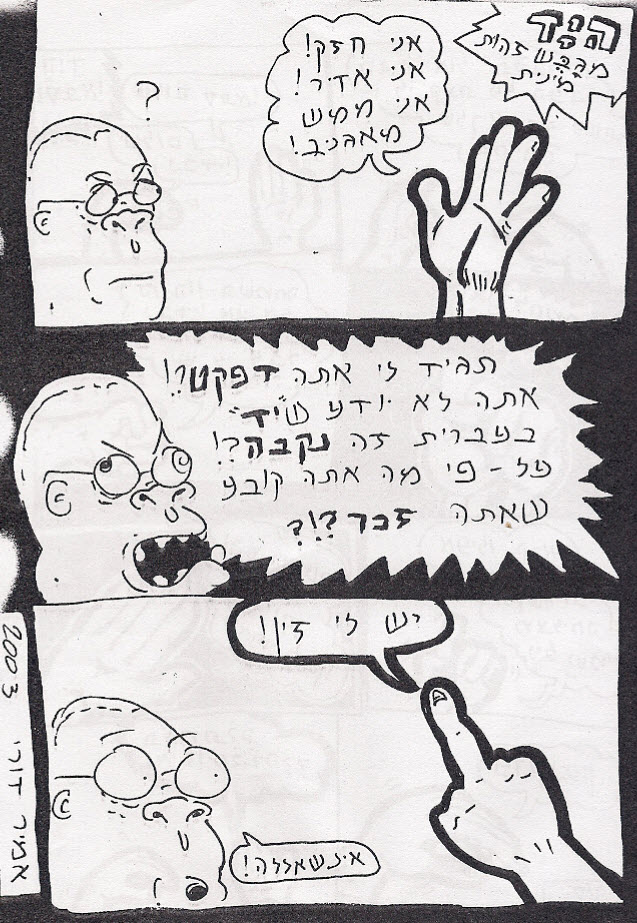 היד
מגבש זהות
מינית
אני חזק!
אני אדיר!
אני ממש
מאגניב!
?
תגיד לי אתה דפקט?!
אתה לא יודע ש"יד"
בעברית זה נקבה?!
על-פי מה אתה קובע
שאתה זכר?!?
יש לי זין!
אינשאללה!
אמיר דורי 2003